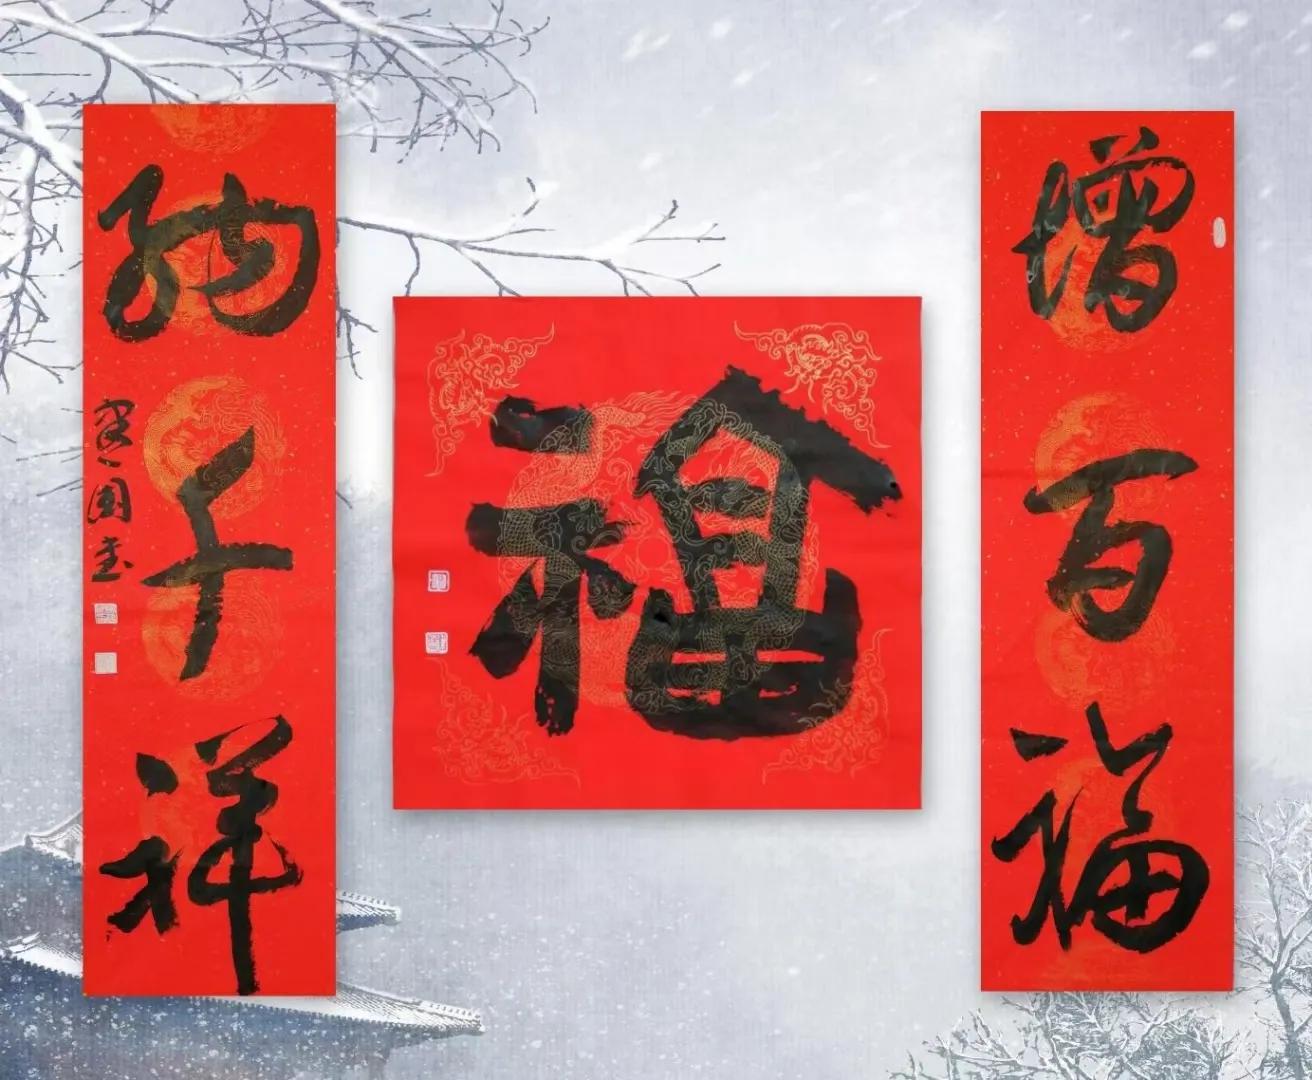 增百福
福
纳千祥
国书